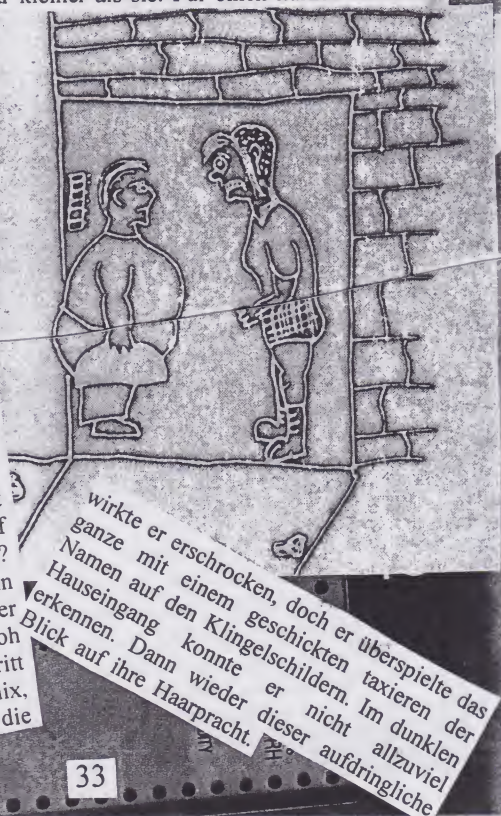 kleiner als sie. Für einen
wirkte er erschrocken, doch er überspielte das
ganze mit einem geschickten taxieren der
Namen auf den Klingelschildern. Im dunklen
Hauseingang konnte er nicht allzuviel
erkennen. Dann wieder dieser aufdringliche
Blick auf ihre Haarpracht.
f
?
in
er
oh
ritt
nix,
die
33